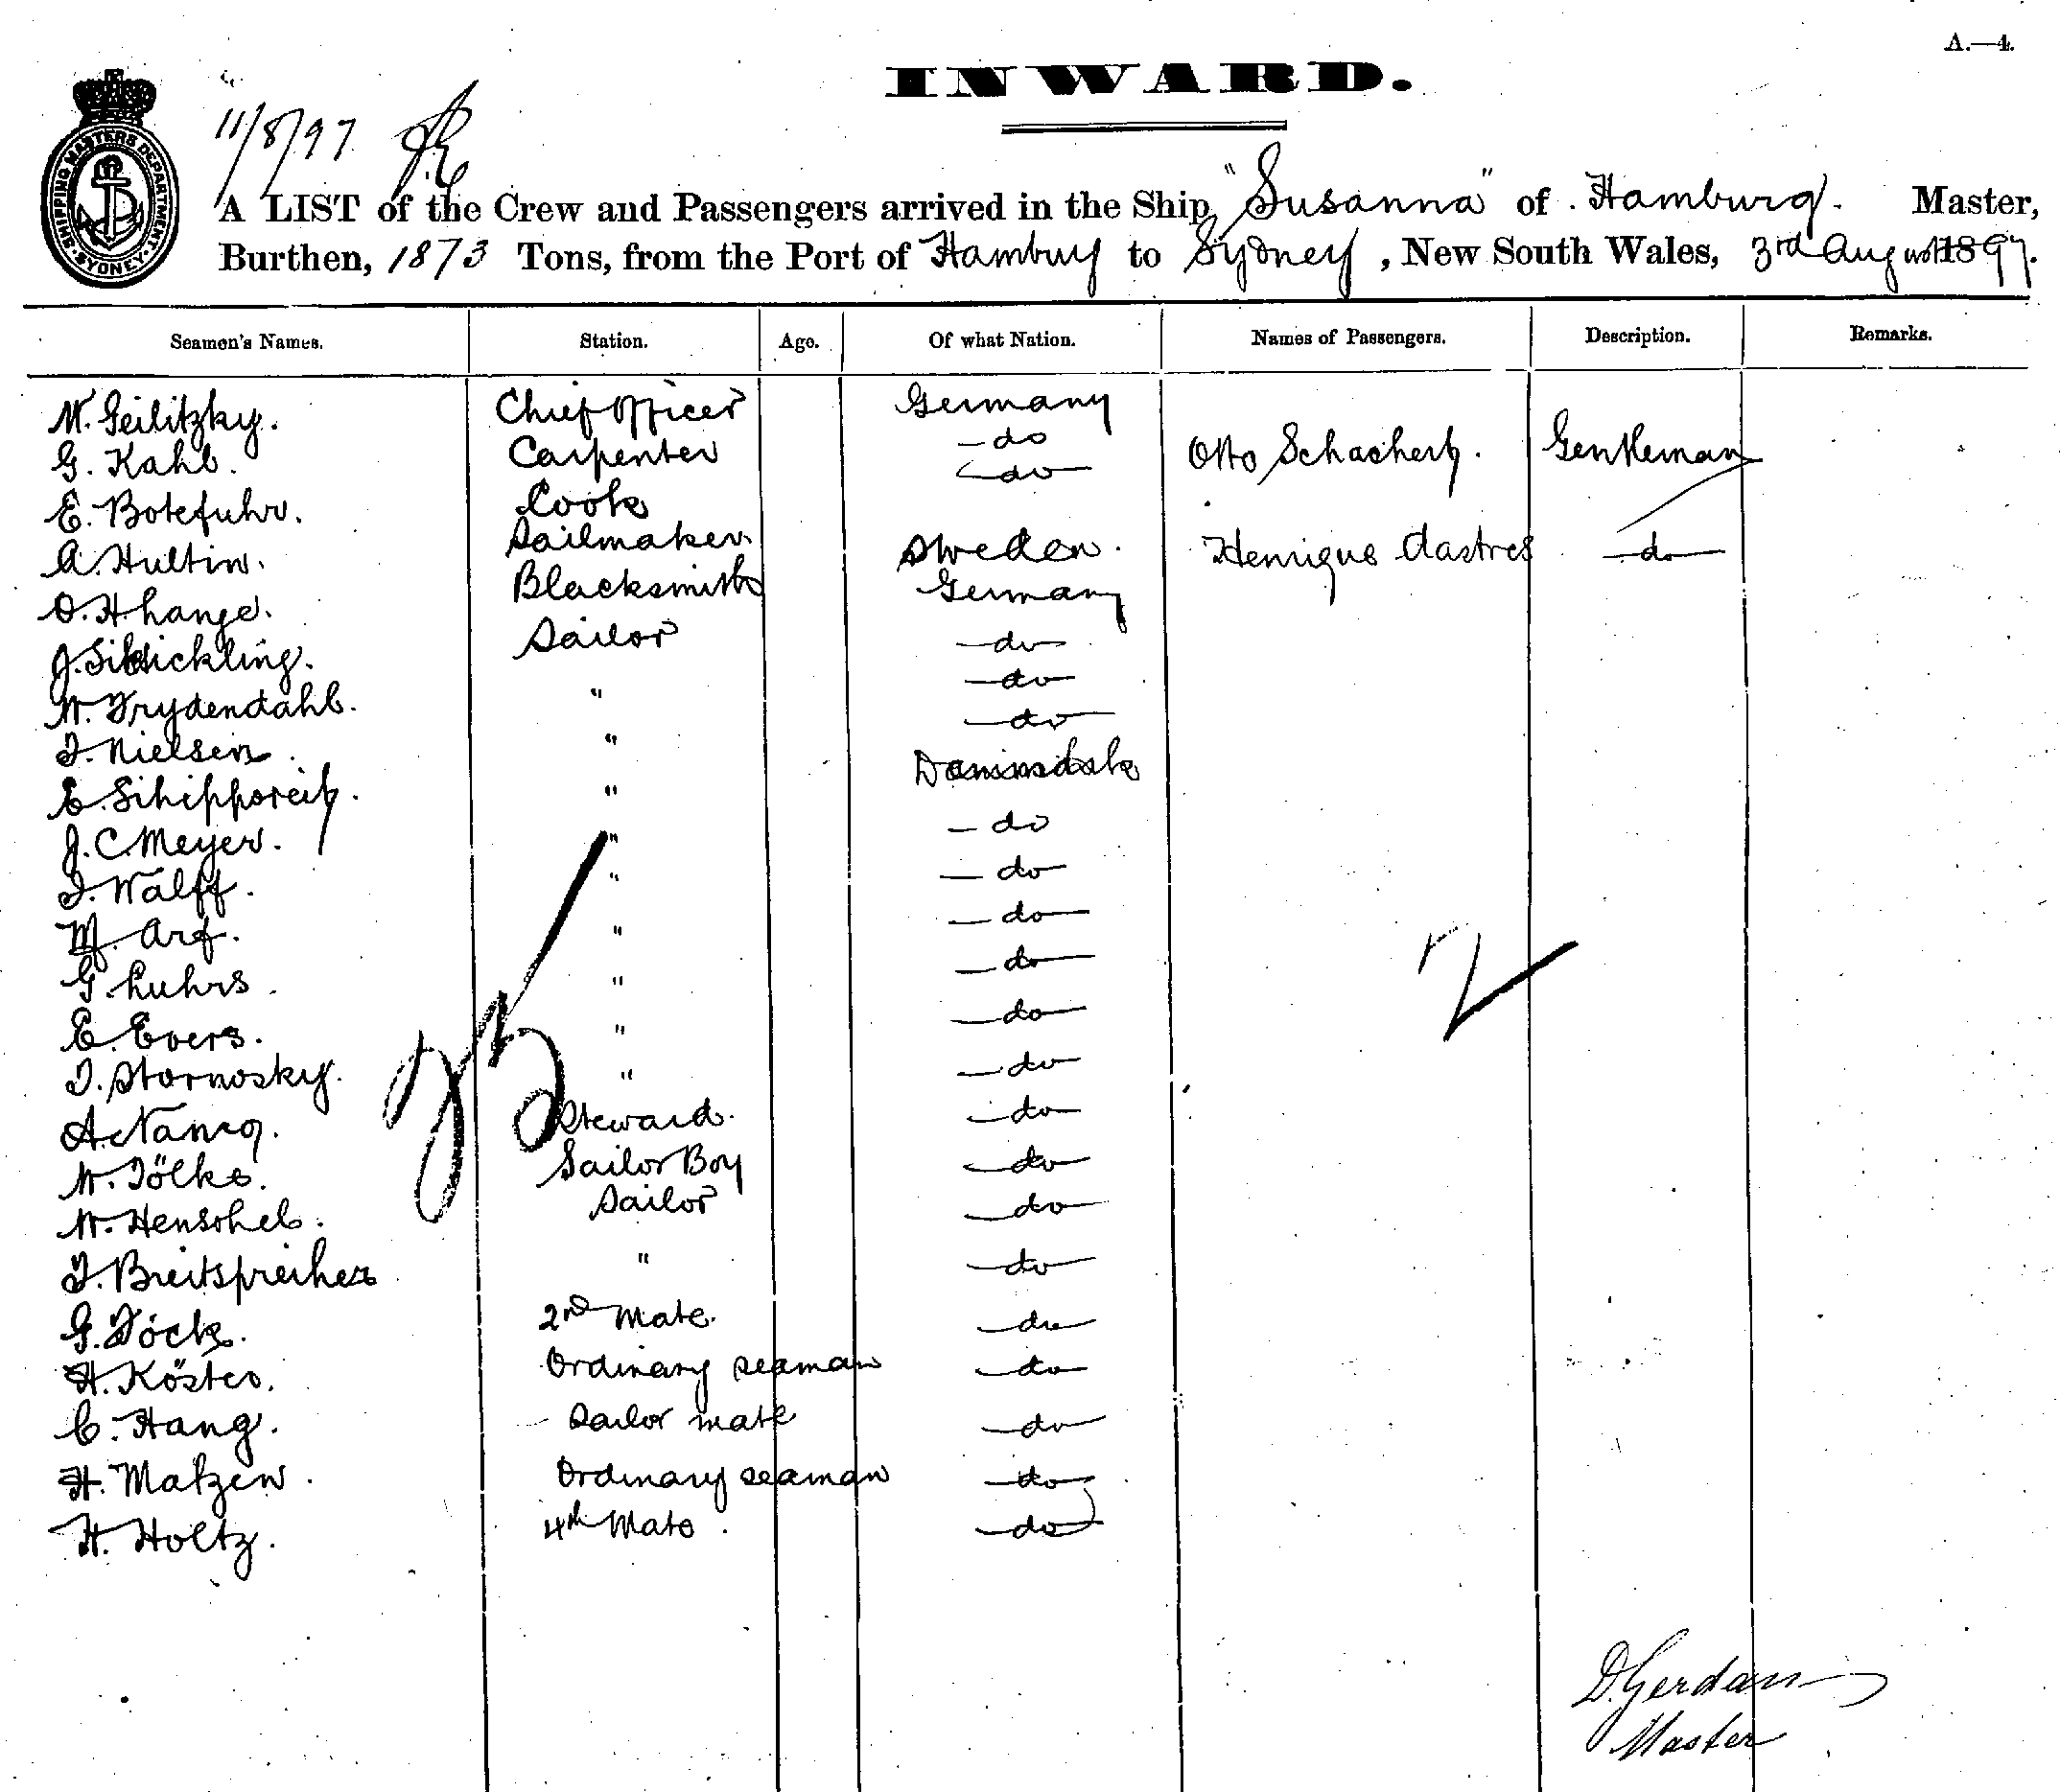 A.—4.
INWARD.
SHIPPING MASTERS DEPARTMENT SYDNEY
11/8/97
A LIST of the Crew and Passengers arrived in the Ship "Susanna" of Hamburg. Master,
Burthen, 1873 Tons, from the Port of Hamburg to Sydney, New South Wales, 3rd August 1897.
Seamen's Names. Station. Age. Of what Nation. Names of Passengers. Description. Remarks.
W. Geilitzky. Chief Officer Germany
G. Kahl. Carpenter —do Otto Schachert. Gentleman
E. Botefuhr. Cook —do—
A. Hultin. Sailmaker. Sweden. Henrique Castres —do—
O. H. Lange. Blacksmith Germany
J. Sailor —do—
W. Frydendahl. " —do—
J. Nielsen. " —do—
E. Schipporeit. "
J. C. Meyer. " —do
J. Walff. " —do—
M. Arf. " —do—
G. Luhrs. " —do—
E. Evers. " —do—
J. Stornosky. " —do—
A. Steward. —do—
W. Tölke. Sailor Boy —do—
W. Henschel. Sailor —do—
J. " —do—
G. 2nd Mate. —do—
H. Köster. Ordinary seaman —do—
C. Hang. Sailor mate —do—
H. Matzen. Ordinary seaman —do—
H. Holtz. 4th Mate. —do—
25
2
D. Gerdau
Master